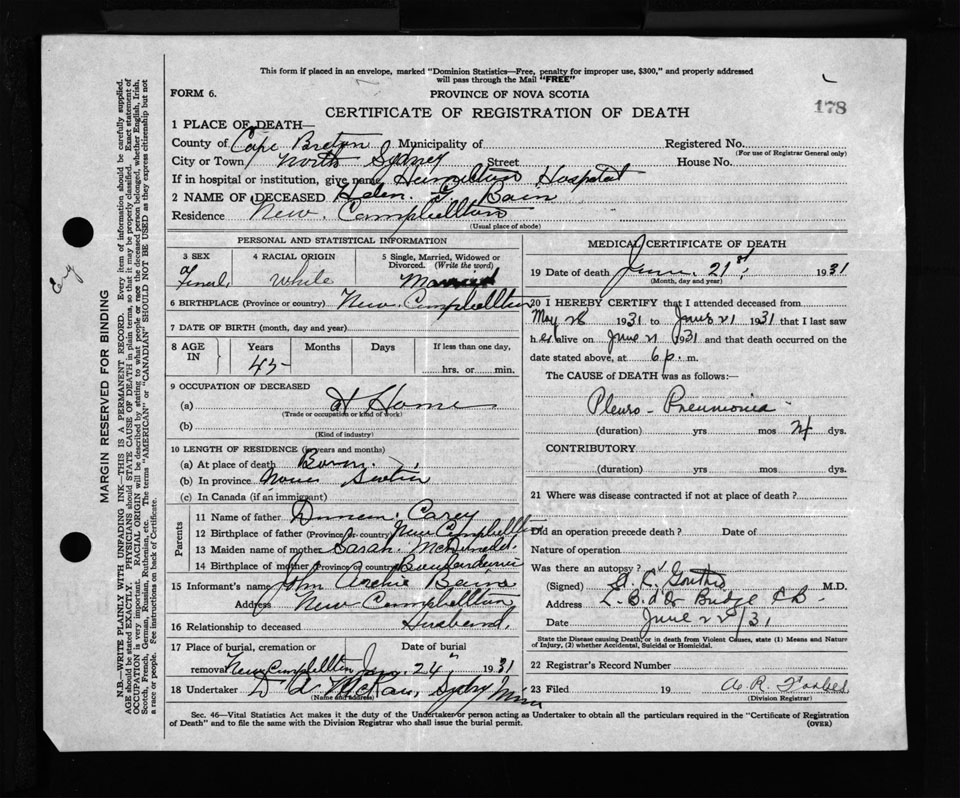 This form if placed in an envelope, marked "Dominion Statistics—Free, penalty for improper use, $300," and properly addressed
will pass through the Mail "FREE"
FORM 6.
PROVINCE OF NOVA SCOTIA
CERTIFICATE OF REGISTRATION OF DEATH
178
1 PLACE OF DEATH—
County of Cape Breton Municipality of Registered No.
(For use of Registrar General only)
City or Town North Sydney Street House No.
If in hospital or institution, give name Hamilton Hospital
2 NAME OF DECEASED Helen Bain
Residence New Campbellton
(Usual place of abode)
PERSONAL AND STATISTICAL INFORMATION
3 SEX
4 RACIAL ORIGIN
5 Single, Married, Widowed or Divorced. (Write the word)
White Married
6 BIRTHPLACE (Province or country) New Campbellton
7 DATE OF BIRTH (month, day and year)
8 AGE IN
Years Months Days If less than one day,
hrs. or min.
45
9 OCCUPATION OF DECEASED
(a) At Home
(Trade or occupation or kind of work)
(b)
(Kind of industry)
10 LENGTH OF RESIDENCE (in years and months)
(a) At place of death Born
(b) In province Nova Scotia
(c) In Canada (if an immigrant)
Parents
11 Name of father Duncan Carey
12 Birthplace of father (Province or country) New Campbellton
13 Maiden name of mother Sarah
14 Birthplace of mother (Province or country) Boulardarie
15 Informant's name John Archie Bain
Address New Campbellton
16 Relationship to deceased Husband
17 Place of burial, cremation or removal Date of burial
New Campbellton 24 1931
18 Undertaker Sydney Mines
(Name and address)
MEDICAL CERTIFICATE OF DEATH
19 Date of death June 21st 1931
(Month, day and year)
20 I HEREBY CERTIFY that I attended deceased from
May 28 1931 to June 21 1931 that I last saw
her alive on June 21 1931 and that death occurred on the
date stated above, at 6 p. m.
The CAUSE of DEATH was as follows:—
Pleuro-Pneumonia
(duration) yrs mos dys.
CONTRIBUTORY
(duration) yrs mos dys.
21 Where was disease contracted if not at place of death?
Did an operation precede death? Date of
Nature of operation
Was there an autopsy?
(Signed) M.D.
Address Bridge C B
Date June 22/31
State the Disease causing Death, or in death from Violent Causes, state (1) Means and Nature of
Injury, (2) whether Accidental, Suicidal or Homicidal.
22 Registrar's Record Number
23 Filed 19 A. R. Forbes
(Division Registrar)
Sec. 46—Vital Statistics Act makes it the duty of the Undertaker or person acting as Undertaker to obtain all the particulars required in the "Certificate of Registration
of Death" and to file the same with the Division Registrar who shall issue the burial permit.
(OVER)
MARGIN RESERVED FOR BINDING
N.B.—WRITE PLAINLY WITH UNFADING INK—THIS IS A PERMANENT RECORD. Every item of information should be carefully supplied.
AGE should be stated EXACTLY. PHYSICIANS should STATE CAUSE OF DEATH in plain terms, so that it may be properly classified. Exact statement of
OCCUPATION is very important. RACIAL ORIGIN will be described by stating to what people or race the deceased person belonged, whether English, Irish,
Scotch, French, German, Russian, Ruthenian, etc. The terms "AMERICAN" or "CANADIAN" SHOULD NOT BE USED as they express citizenship but not
a race or people. See instructions on back of Certificate.